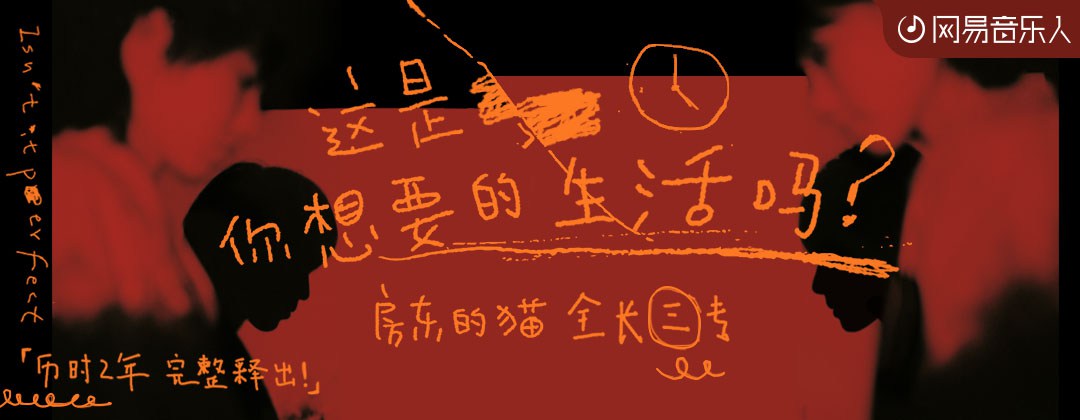 网易音乐人
Isn't it perfect
这是
你想要的生活吗?
房东的猫 全长三专
「历时2年 完整释出!」